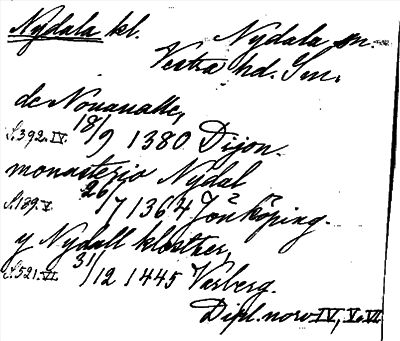 Nydala kl. Nydala sn.
Vestra hd. Sm.
de Nouaualle,
S.392.IV. 18/9 1380 Dijon.
monasterio Nydal
S.189.V. 26/7 1364 Jönköping.
y Nydall kloster,
S.521.VI. 31/12 1445 Varberg.
Dipl. norv. IV, V, VI